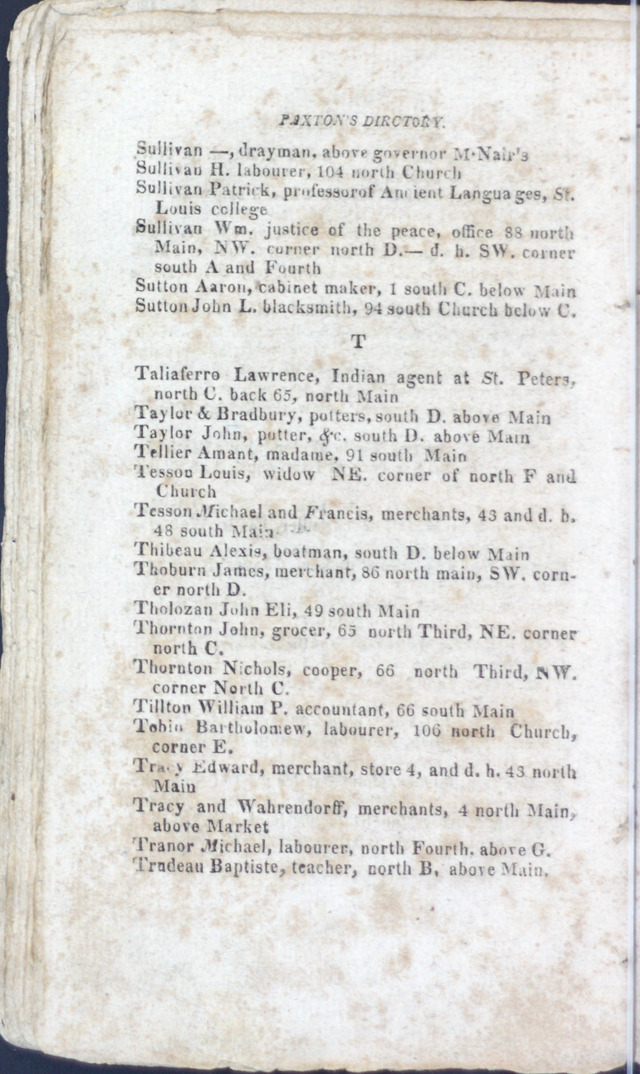 PAXTON'S DIRCTORY.
Sullivan —, drayman, above governor M·Nair's
Sullivan H. labourer, 104 north Church
Sullivan Patrick, professorof Ancient Languages, St.
Louis college
Sullivan Wm. justice of the peace, office 88 north
Main, NW. corner north D.— d. h. SW. corner
south A and Fourth
Sutton Aaron, cabinet maker, 1 south C. below Main
Sutton John L. blacksmith, 94 south Church below C.
T
Taliaferro Lawrence, Indian agent at St. Peters,
north C. back 65, north Main
Taylor & Bradbury, potters, south D. above Main
Taylor John, potter, &c. south D. above Main
Tellier Amant, madame, 91 south Main
Tesson Louis, widow NE. corner of north F and
Church
Tesson Michael and Francis, merchants, 43 and d. h.
48 south Main
Thibeau Alexis, boatman, south D. below Main
Thoburn James, merchant, 86 north main, SW. corn-
er north D.
Tholozan John Eli, 49 south Main
Thornton John, grocer, 65 north Third, NE. corner
north C.
Thornton Nichols, cooper, 66 north Third, NW.
corner North C.
Tillton William P. accountant, 66 south Main
Tobin Bartholomew, labourer, 106 north Church,
corner E.
Tracy Edward, merchant, store 4, and d. h. 43 north
Main
Tracy and Wahrendorff, merchants, 4 north Main,
above Market
Tranor Michael, labourer, north Fourth. above G.
Trudeau Baptiste, teacher, north B, above Main.